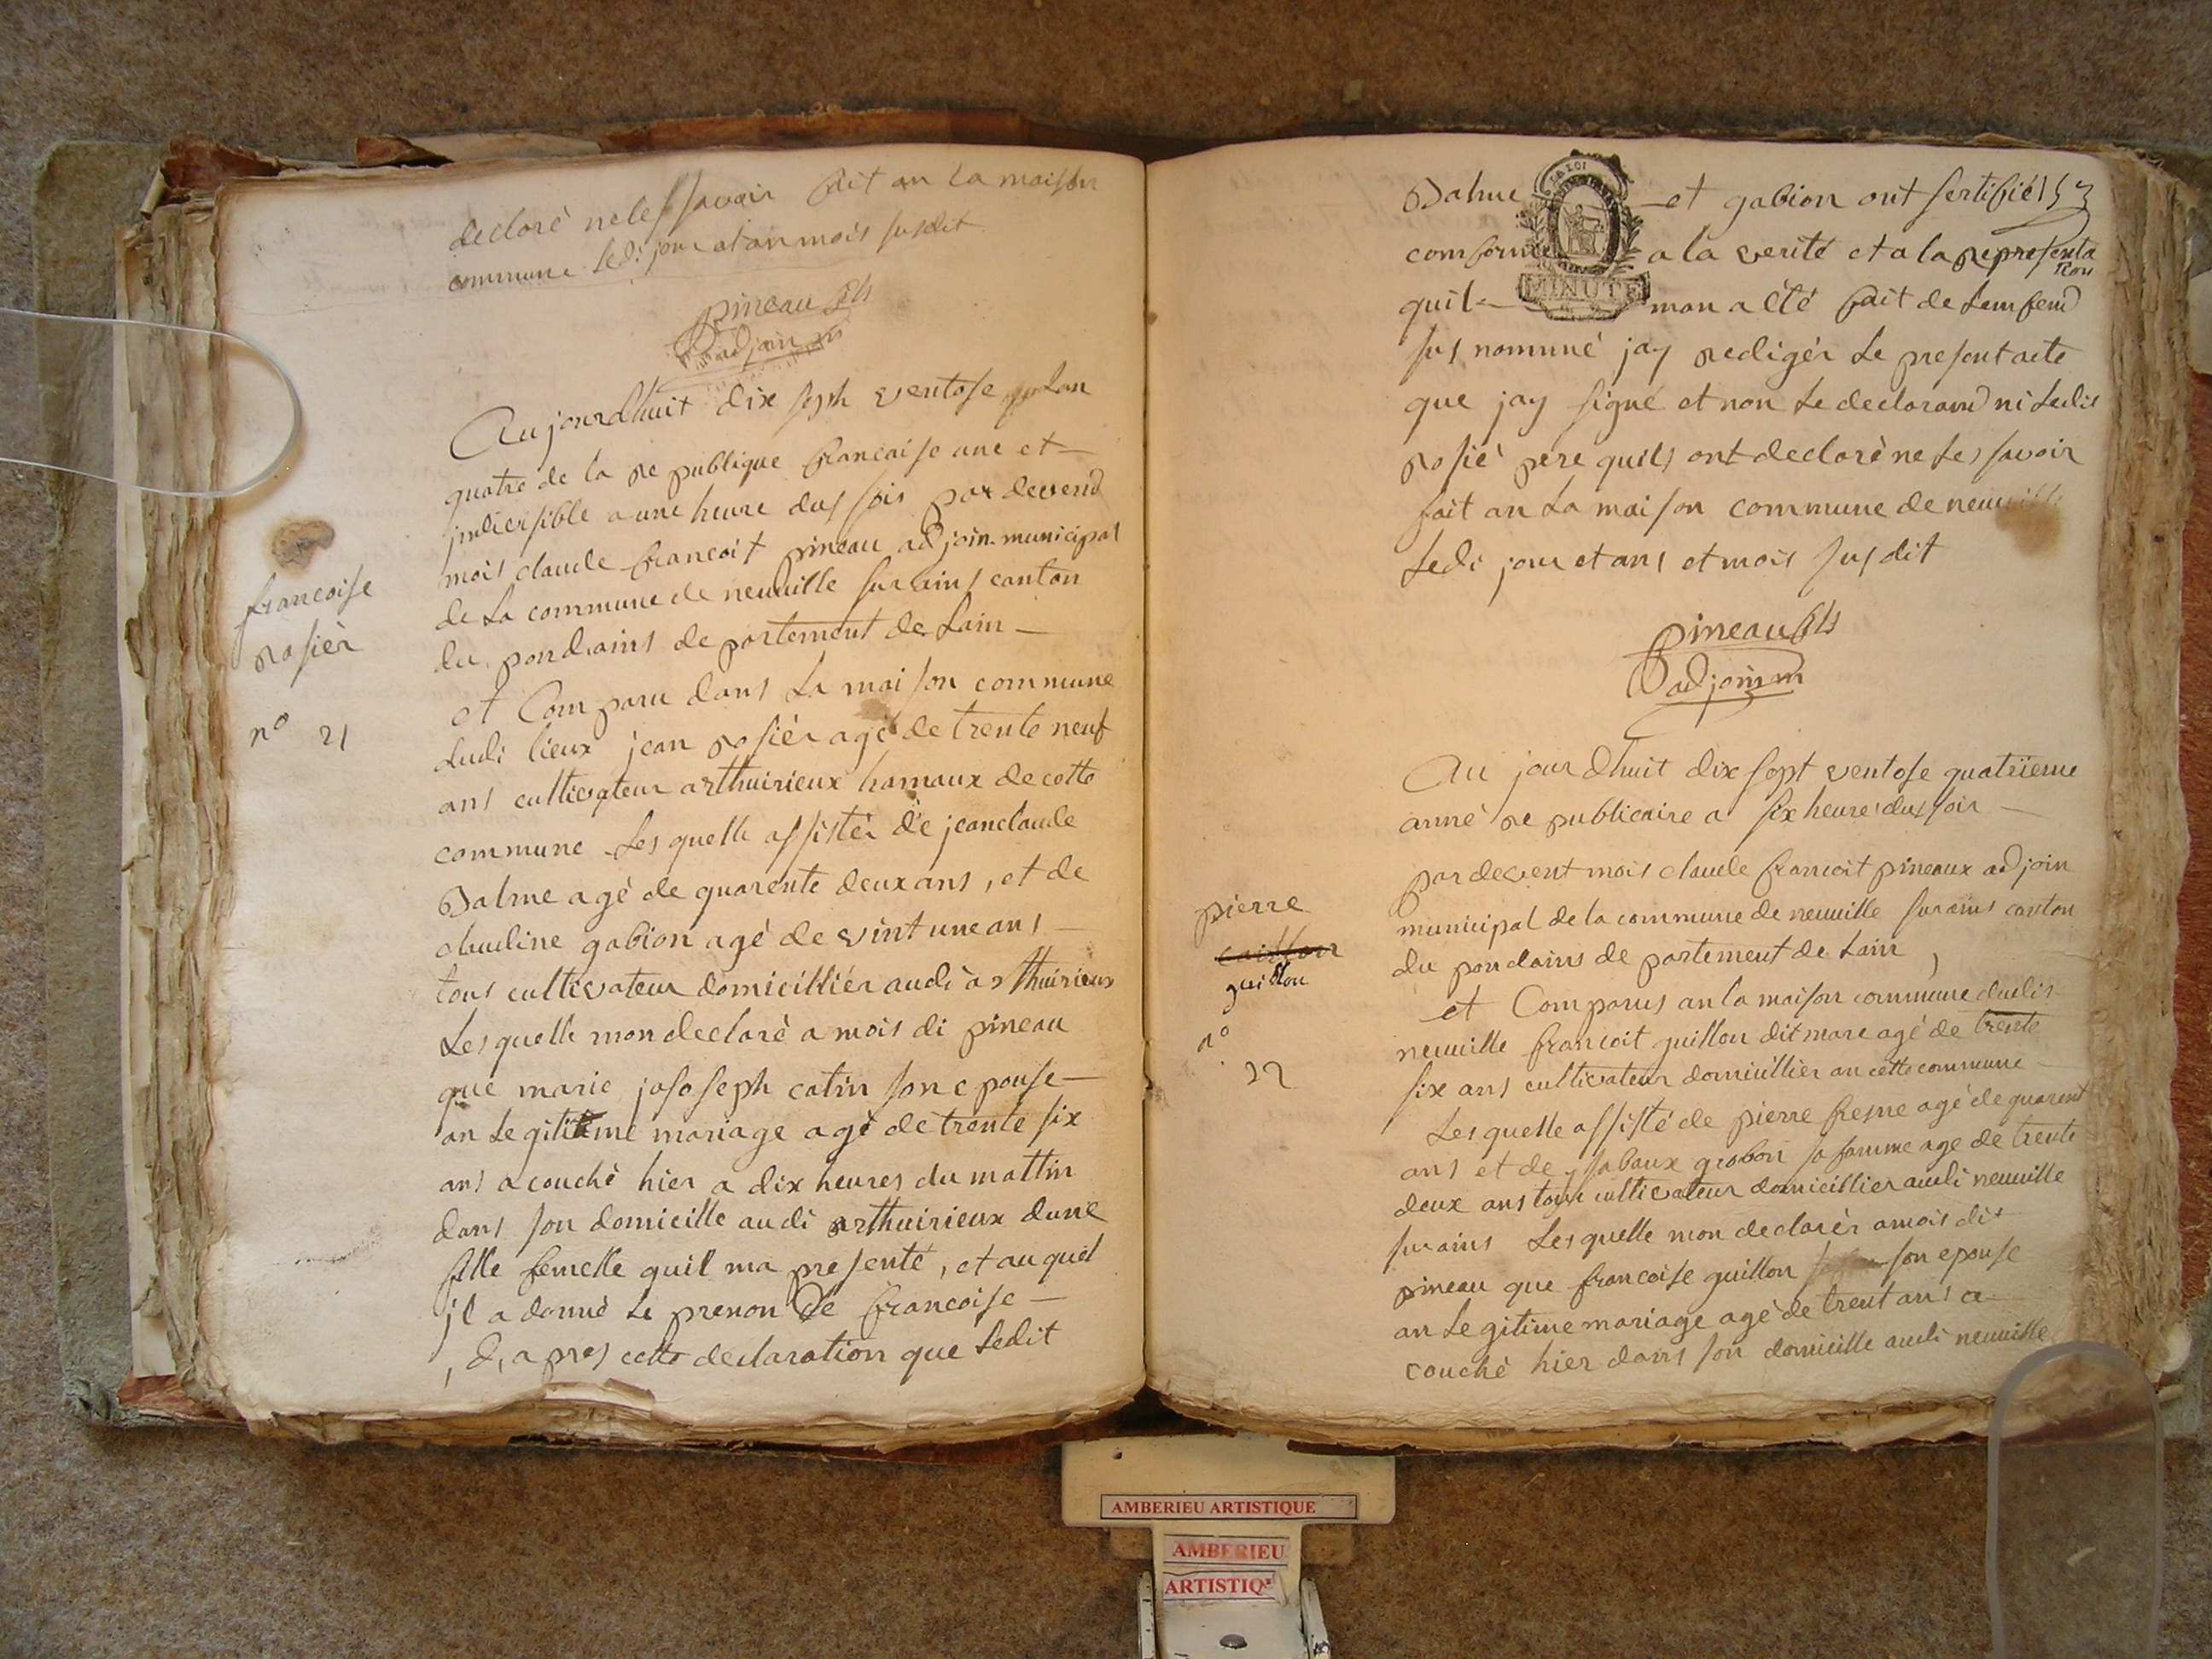 declaré ne lessavoir fait an la maison
commune ledi jour et an mois susdit
pineau fils
adjoin
Aujourdhuit dix seph ventose lan
quatre de la republique francaise une et
jndiersible a une heure dus sois par devend
mois claude francoit pineau adjoin municipal
de la commune de neuville sur ains canton
du pondains de partement de Lain
et Comparu dans La maison commune
dudi lieux jean rosiér agé de trente neuf
ans cultivateur arthuirieux hamaux de cette
commune Lesquelle assistér de jeanclaude
Dalme agé de quarente deux ans, et de
claudine gabion agé de vint une ans
tous cultivateur domicilliér audi arthuirieux
Lesquelle mon declaré a mois di pineau
que marie jososeph catin son epouse
an Legilitime mariage agé de trente six
ans acouché hier a dix heures du mattin
dans son domicille audi arthuirieux dune
fille femelle quil ma presenté, et auquel
jl a donné le prenon de francoise
, d, apres cette declaration que ledit
francoise
rosiér
n° 21
Dalme et gabion ont sertifié 153
comforme a la verité et a la representa
tion
quil mon a été fait de Lemfend
sus nommé jay redigér Le present acte
que jay signé et non Le declarand ni Ledit
rosié pere quils ont declaré ne Les savoir
fait an La maison commune de neuville
Ledi jour et ans et mois susdit
LA LOI
MINUTE
pineau fils
adjoinm
Au jourdhuit dix sept ventose quatrïeme
anné republicaire a six heure dus soir
par devent mois claude francoit pineaux adjoin
municipal de la commune de neuville sur ains canton
du pondains de partement de Lain,
et Comparus an la maison commune dudis
neuville francoit guillon dit mare agé de trente
six ans cultivateur domicillier an cette commune
Lesquelle assisté de pierre fresne agé de quarent
ans et de ysabaux grobon sa famme age de trente
deux ans tous cultivateur domicillier audi neuville
sur ains Lesquelle mon declarér a mois dit
pineau que francoise guillon son epouse
an Legitime mariage agé de trent ans a
couché hier dans son domicille audi neuville
pierre
guillon
n°
22
AMBERIEU ARTISTIQUE
AMBERIEU
ARTISTIQ